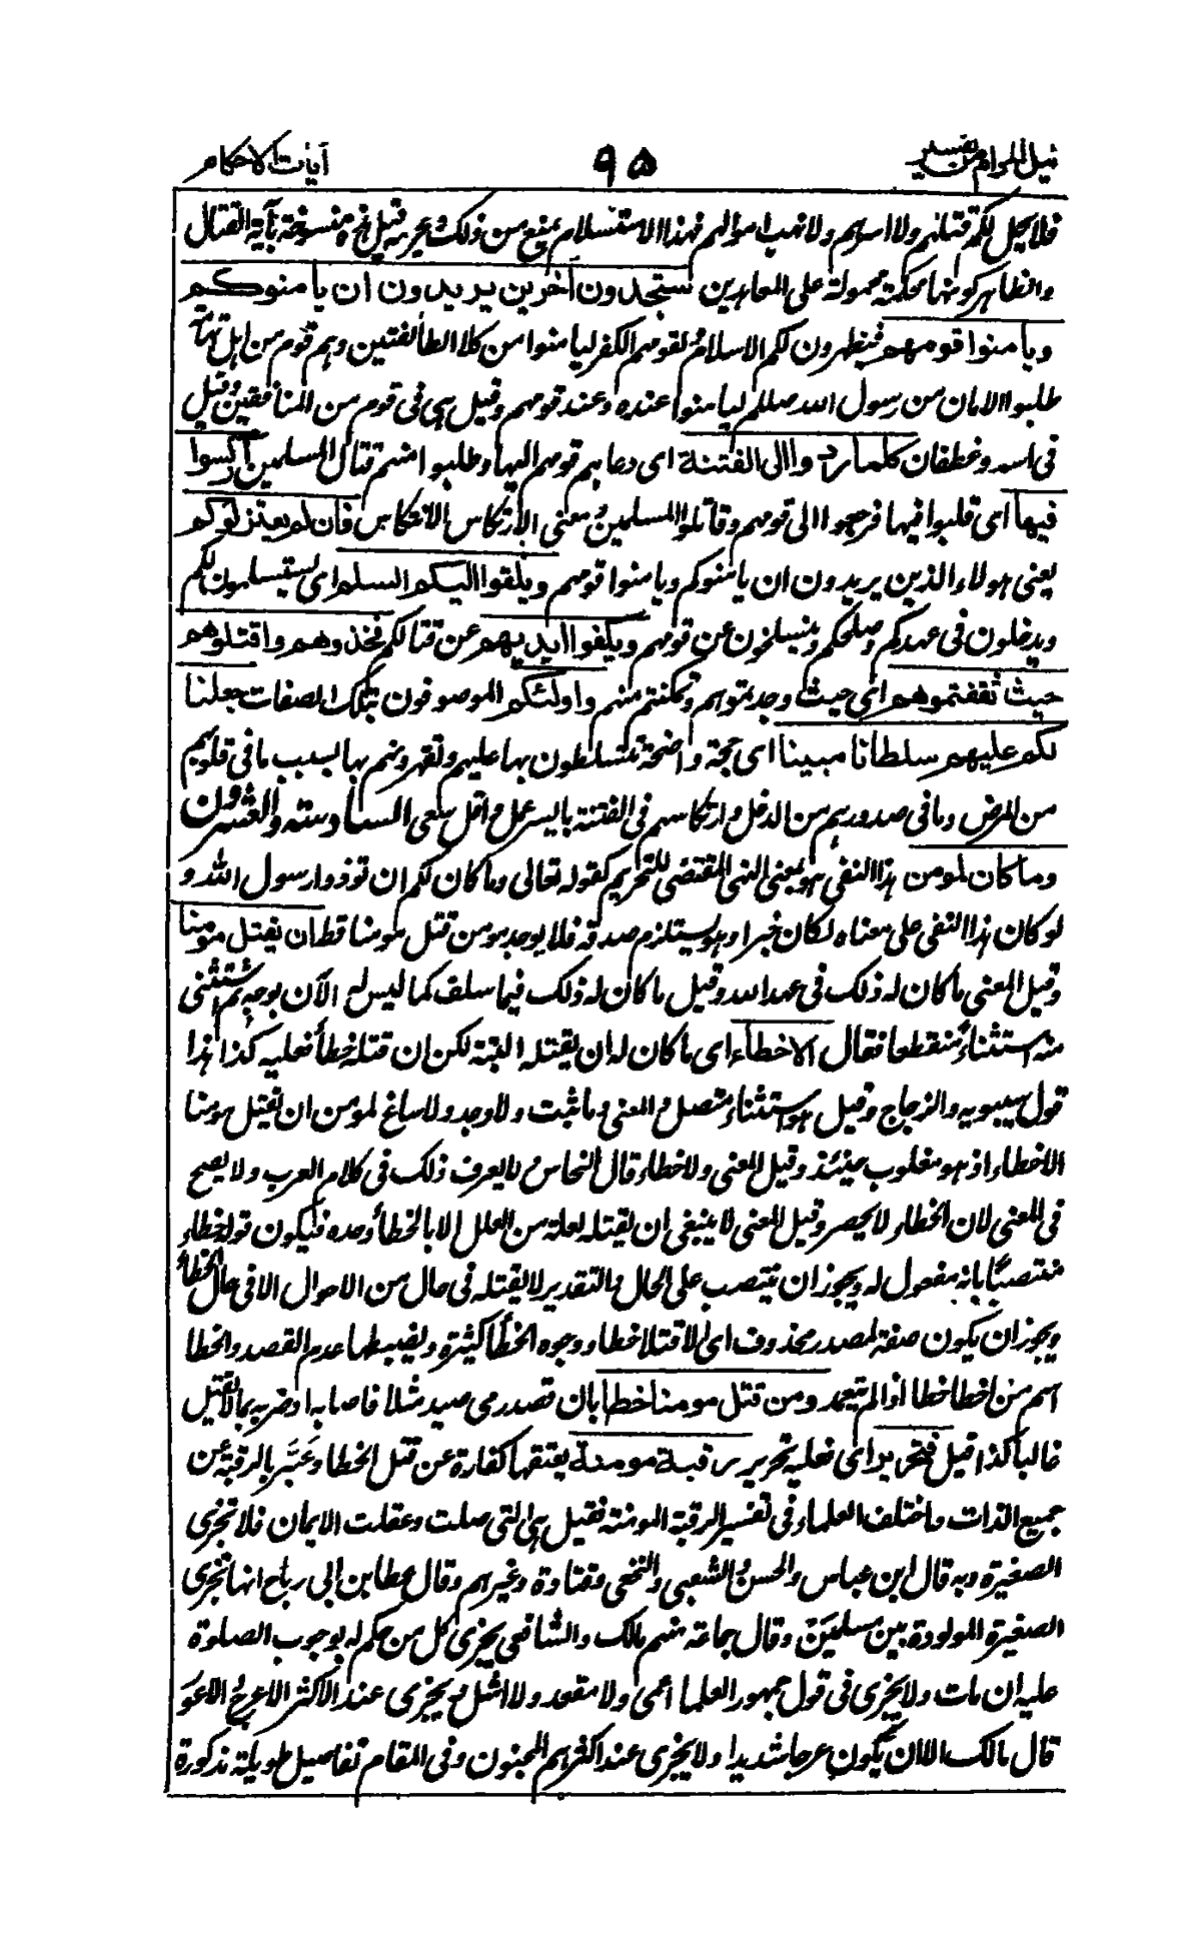 نيل المرام من تفسير
٩٥
آيات الاحكام
فلا يحل لكم قتلهم ولا اسرهم ولا نهب اموالهم فهذا الاستسلام يمنع من ذلك ويحرمه قيل هذه منسوخة بآية القتال
والظاهر كونها محكمة محمولة على المعاهدين ستجدون آخرين يريدون ان يأمنوكم
ويأمنوا قومهم فيظهرون لكم الاسلام ولقومهم الكفر ليأمنوا من كلا الطائفتين وهم قوم من اهل تهامة
طلبوا الامان من رسول الله صللم ليأمنوا عنده وعند قومهم وقيل هي في قوم من المنافقين وقيل
في اسد وغطفان كلما ردوا الى الفتنة اى دعاهم قومهم اليها وطلبوا منهم قتال المسلمين اركسوا
فيها اى قلبوا فيها فرجعوا الى قومهم وقاتلوا المسلمين ومعنى الارتكاس الانتكاس فان لم يعتزلوكم
يعنى هولاء الذين يريدون ان يأمنوكم ويأمنوا قومهم ويلقوا اليكم السلم اى يستسلمون لكم
ويدخلون في عهدكم وصلحكم وينسلخون عن قومهم ويكفوا ايديهم عن قتالكم فخذوهم واقتلوهم
حيث ثقفتموهم اى حيث وجدتموهم وتمكنتم منهم واولئكم الموصوفون بتلك الصفات جعلنا
لكم عليهم سلطانا مبينا اى حجة واضحة تتسلطون بها عليهم وتقهرونهم بها بسبب ما في قلوبهم
من المرض وما في صدورهم من الدغل وارتكاسهم في الفتنة بايسر عمل واقل سعى السادسة والعشرون
وما كان لمومن هذا النفى هو بمعنى النهى المقتضى للتحريم كقوله تعالى وما كان لكم ان توذوا رسول الله و
لو كان هذا النفى على معناه لكان خبرا وهو يستلزم صدقه فلا يوجد مومن قتل مومنا قط ان يقتل مومنا
وقيل المعنى ما كان له ذلك في عهد الله وقيل ما كان له ذلك فيما سلف كما ليس له الآن بوجه ثم استثنى
منه استثناء منقطعا فقال الا خطاء اى ما كان له ان يقتله البتة لكن ان قتله خطأ فعليه كذا هذا
قول سيبويه والزجاج وقيل هو استثناء متصل والمعنى وما ثبت ولا وجد ولا ساغ لمومن ان يقتل مومنا
الا خطاء اذ هو مغلوب حينئذ وقيل المعنى ولا خطاء قال النحاس ولا يعرف ذلك في كلام العرب ولا يصح
في المعنى لان الخطاء لا يحصر وقيل المعنى لا ينبغى ان يقتله لعلة من العلل الا بالخطأ وحده فيكون قوله خطاء
منتصبا بانه مفعول له ويجوز ان ينتصب على الحال والتقدير لا يقتله في حال من الاحوال الا في حال الخطأ
ويجوز ان يكون صفة لمصدر محذوف اى الا قتلا خطاء ووجوه الخطأ كثيرة ويضبطها عدم القصد والخطا
اسم من اخطا خطا اذا لم يتعمد ومن قتل مومنا خطا بان قصد رمى صيد مثلا فاصابه او ضربه بما لا يقتل
غالبا كذا قيل فتحرير اى فعليه تحرير رقبة مومنة يعتقها كفارة عن قتل الخطا وعَبَّر بالرقبة عن
جميع الذات واختلف العلماء في تفسير الرقبة المومنة فقيل هي التي صلت وعقلت الايمان فلا تجزى
الصغيرة وبه قال ابن عباس والحسن والشعبى والنخعى وقتادة وغيرهم وقال عطا بن ابى رباح انها تجزى
الصغيرة المولودة بين مسلمين وقال جماعة منهم مالك والشافعى يجزى كل من حكم له بوجوب الصلوة
عليه ان مات ولا يجزى في قول جمهور العلما اعمى ولا مقعد ولا اشل ويجزى عند الاكثر الاعرج والاعور
قال مالك الا ان يكون عرجا شديدا ولا يجزى عند اكثرهم المجنون وفى المقام تفاصيل طويلة مذكورة